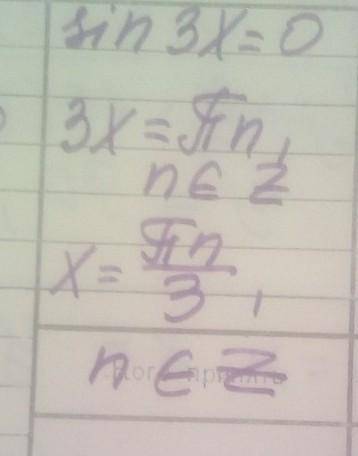 sin 3x = 0
3x = πn,
n ∈ Z
x = πn/3,
n ∈ Z